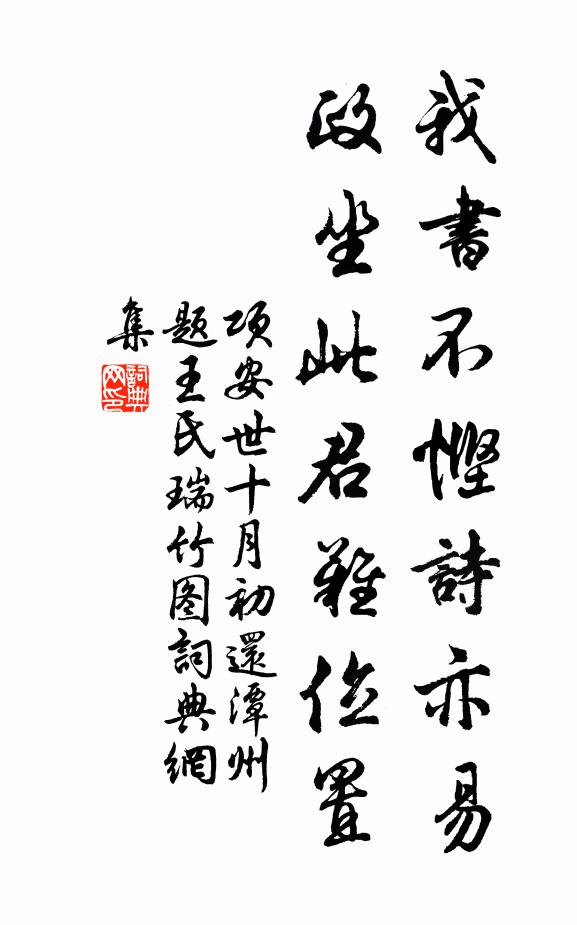 我書不慳詩亦易
政坐此君難位置
項安世十月初還潭州
題王氏瑞竹图詞典網
集
詞典
网印